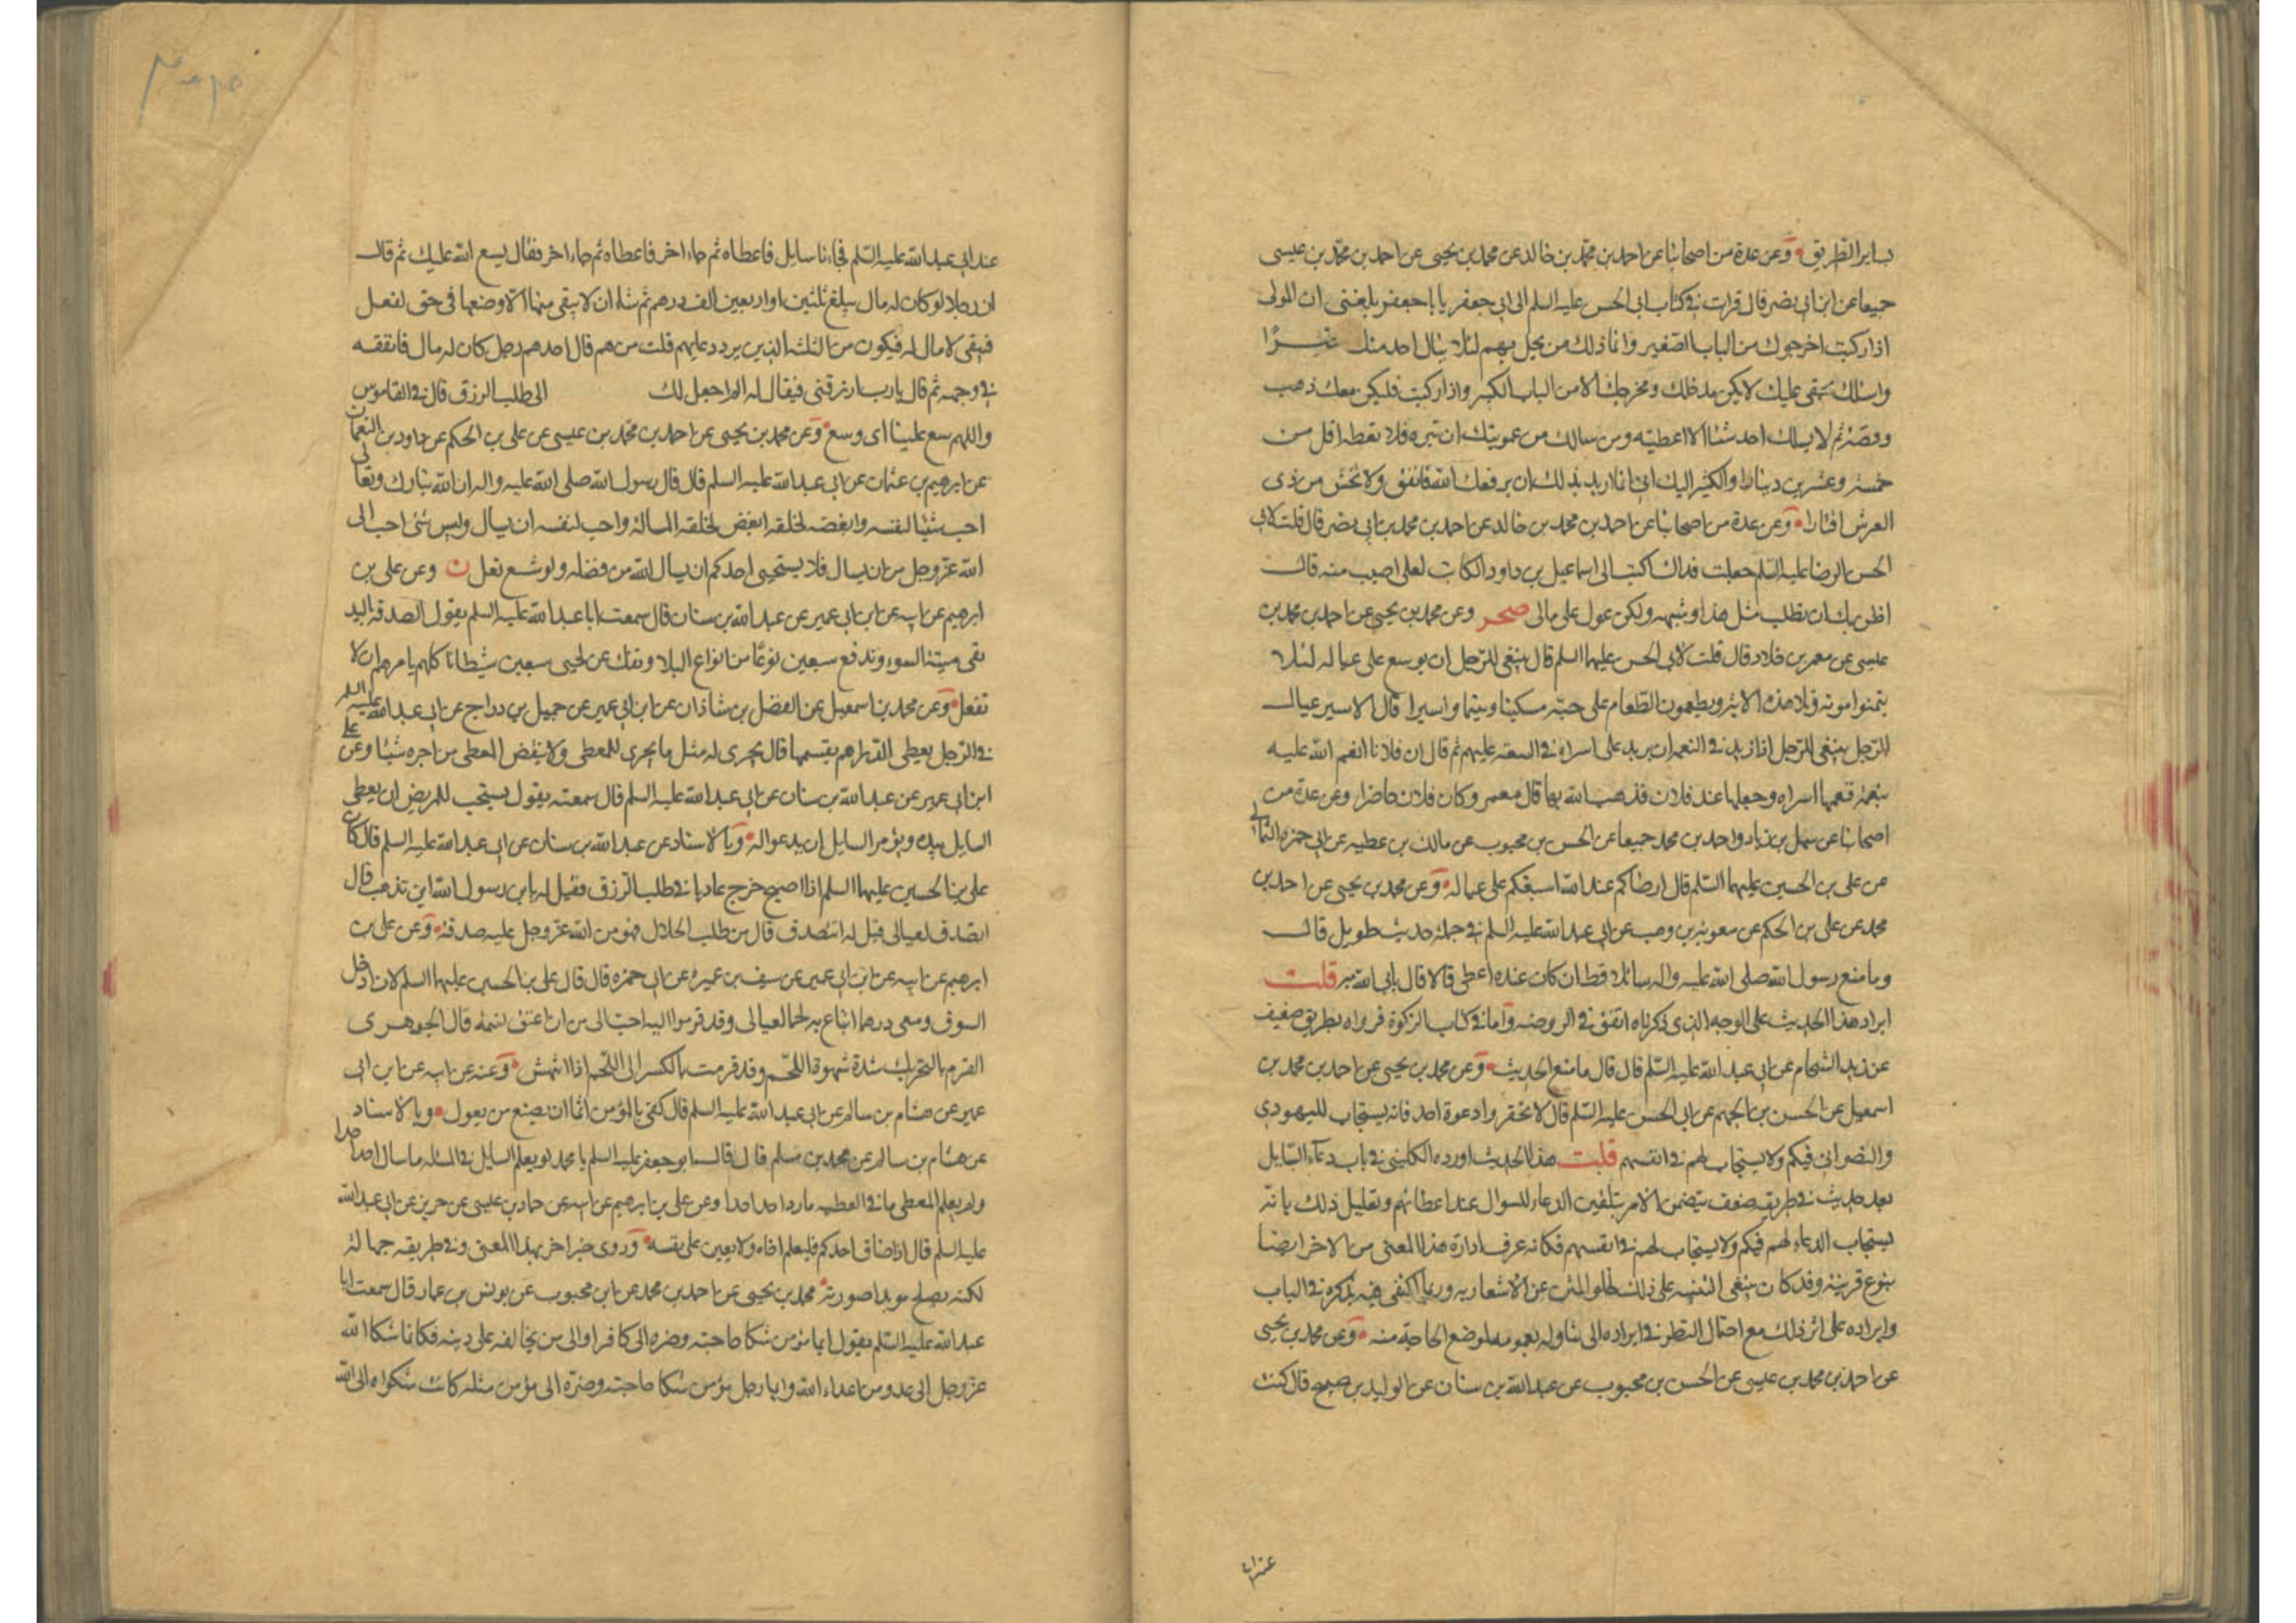 بساير الطريق وعن عدة من اصحابنا عن احمد بن محمد بن خالد عن محمد بن يحيى عن احمد بن محمد بن عيسى
جميعا عن ابن ابي نصر قال قرات في كتاب ابي الحسن عليه السلم الى ابي جعفر يا با جعفر بلغنى ان الموالى
اذا ركبت اخرجوك من الباب الصغير وانما ذلك من بخل بهم لئلا ينال احد منك خيرًا
واسئلك بحقى عليك لا يكن مدخلك ومخرجك الا من الباب الكبير واذا ركبت فليكن معك ذهب
وفضة ثم لا يسالك احد شئا الا اعطيته ومن سالك من عمومتك ان تبره فلا تعطه اقل من
خمسة وعشرين دينارا والكثير اليك اني انما اريد بذلك ان يرفعك الله فانفق ولا تخش من ذى
العرش اقتارا وعن عدة من اصحابنا عن احمد بن محمد بن خالد عن احمد بن محمد بن ابي نصر قال قلت لابي
الحسن الرضا عليه السلم جعلت فداك اكتب لى الى اسماعيل بن داود الكاتب لعلى اصيب منه قال
اظن بك ان تطلب مثل هذا وشبهه ولكن عول على مالى صحر وعن محمد بن يحيى عن احمد بن محمد بن
عيسى عن معمر بن خلاد قال قلت لابي الحسن عليهما السلم قال ينبغى للرجل ان يوسع على عياله لئلا
يتمنوا موته وتلا هذه الاية ويطعمون الطعام على حبه مسكينا ويتيما واسيرا قال الاسير عيال
الرجل ينبغى للرجل اذا زيد في النعمة ان يزيد على اسراه في السعة عليهم ثم قال ان فلانا انعم الله عليه
بنعمة فمنعها اسراه وجعلها عند فلان فذهب الله بها قال معمر وكان فلان حاضرا وعن عدة من
اصحابنا عن سهل بن زياد واحمد بن محمد جميعا عن الحسن بن محبوب عن مالك بن عطيه عن ابي حمزه الثمالي
عن على بن الحسين عليهما السلم قال ارضاكم عند الله اسبغكم على عياله وعن محمد بن يحيى عن احمد بن
محمد عن على بن الحكم عن معوية بن وهب عن ابي عبد الله عليه السلم في جملة حديث طويل قال
وما منع رسول الله صلى الله عليه واله سائلا قط ان كان عنده اعطى والا قال ياتى الله به قلت
ايراد هذا الحديث على الوجه الذى ذكرناه اتفق في الروضه واما في كتاب الزكوة فرواه بطريق ضعيف
عن زيد الشحام عن ابي عبد الله عليه السلم قال قال ما منع الحديث وعن محمد بن يحيى عن احمد بن محمد بن
اسمعيل عن الحسن بن الجهم عن ابي الحسن عليه السلم قال لا تحقروا دعوة احد فانه يستجاب لليهودي
والنصراني فيكم ولا يستجاب لهم في انفسهم قلت هذا الحديث اورده الكليني في باب دعاء السايل
بعد حديث في طريقه ضعف يتضمن الامر بتلقين الدعاء للسوال عند اعطائهم وتعليل ذلك بانه
يستجاب الدعاء لهم فيكم ولا يستجاب لهم في انفسهم فكانه عرف ارادة هذا المعنى من الاخر ايضا
بنوع قرينة وقد كان ينبغى التنبيه على ذلك لخلو المتن عن الاشعار به وربما اكتفى فيه بذكره في الباب
وايراده على اثر ذلك مع احتمال النظر في ايراده الى تناوله بعمومه لموضع الحاجة منه وعن محمد بن يحيى
عن احمد بن محمد بن عيسى عن الحسن بن محبوب عن عبد الله بن سنان عن الوليد بن صبيح قال كنت
عند ابي
عند ابي عبد الله عليه السلم فجاءنا سايل فاعطاه ثم جاء اخر فاعطاه ثم جاء اخر فقال يسع الله عليك ثم قال
ان رجلا لو كان له مال يبلغ ثلثين او اربعين الف درهم ثم شاء ان لا يبقى منها الا وضعها في حق لفعل
فيبقى لا مال له فيكون من الثلثة الذين يرد دعاءهم قلت من هم قال احدهم رجل كان له مال فانفقه
في وجهه ثم قال يا رب ارزقنى فيقال له الم اجعل لك الى طلب الرزق قال في القاموس
واللهم سع علينا اى وسع وعن محمد بن يحيى عن احمد بن محمد بن عيسى عن على بن الحكم عن داود بن النعمان
عن ابرهيم بن عثمان عن ابي عبد الله عليه السلم قال قال رسول الله صلى الله عليه واله ان الله تبارك وتعالى
احب شيئا لنفسه وابغضه لخلقه ابغض لخلقه المسالة واحب لنفسه ان يسال وليس شئ احب الى
الله عز وجل من ان يسال فلا يستحيى احدكم ان يسال الله من فضله ولو شسع نعل ن وعن على بن
ابرهيم عن ابيه عن ابن ابي عمير عن عبد الله بن سنان قال سمعت ابا عبد الله عليه السلم يقول الصدقه باليد
تقى ميتة السوء وتدفع سبعين نوعا من انواع البلاء وتفك عن لحيى سبعين شيطانا كلهم يامره ان لا
تفعل وعن محمد بن اسمعيل عن الفضل بن شاذان عن ابن ابي عمير عن جميل بن دراج عن ابي عبد الله عليه السلم
في الرجل يعطى الدراهم يقسمها قال يجرى له مثل ما يجرى للمعطى ولا ينقص المعطى من اجره شيئا وعن على
ابن ابي عمير عن عبد الله بن سنان عن ابي عبد الله عليه السلم قال سمعته يقول يستحب للمريض ان يعطى
السايل بيده ويؤمر السايل ان يدعو له وبالاسناد عن عبد الله بن سنان عن ابي عبد الله عليه السلم قال كان
على بن الحسين عليهما السلم اذا اصبح خرج غاديا في طلب الرزق فقيل له يابن رسول الله اين تذهب قال
اتصدق لعيالى قيل له اتتصدق قال من طلب الحلال فهو من الله عز وجل عليه صدقة وعن على بن
ابرهيم عن ابيه عن ابن ابي عمير عن سيف بن عميرة عن ابي حمزه قال قال على بن الحسين عليهما السلم لان ادخل
السوق ومعى درهما ابتاع به لحما لعيالى وقد قرموا اليه احب الى من ان اعتق نسمة قال الجوهرى
القرم بالتحريك شدة شهوة اللحم وقد قرمت بالكسر الى اللحم اذا اشتهيته وعنه عن ابيه عن ابن ابي
عمير عن هشام بن سالم عن ابي عبد الله عليه السلم قال كفى بالمؤمن اثما ان يضيع من يعول وبالاسناد
عن هشام بن سالم عن محمد بن مسلم قال قال ابو جعفر عليه السلم يا محمد لو يعلم السايل ما في المسئلة ما سال احد احدا
ولو يعلم المعطى ما في العطيه ما رد احد احدا وعن على بن ابرهيم عن ابيه عن حماد بن عيسى عن حريز عن ابي عبد الله
عليه السلم قال اذا ضاق احدكم فليعلم اخاه ولا يعين على نفسه وروى خبرا اخر بهذا المعنى وفي طريقه جهالة
لكنه يصلح مويدا صورته محمد بن يحيى عن احمد بن محمد عن ابن محبوب عن يونس بن عمار قال سمعت ابا
عبد الله عليه السلم يقول ايما مؤمن شكا حاجته وضره الى كافر او الى من يخالفه على دينه فكانما شكا الله
عز وجل الى عدو من اعداء الله وايما رجل مؤمن شكا حاجته وضره الى مؤمن مثله كانت شكواه الى الله